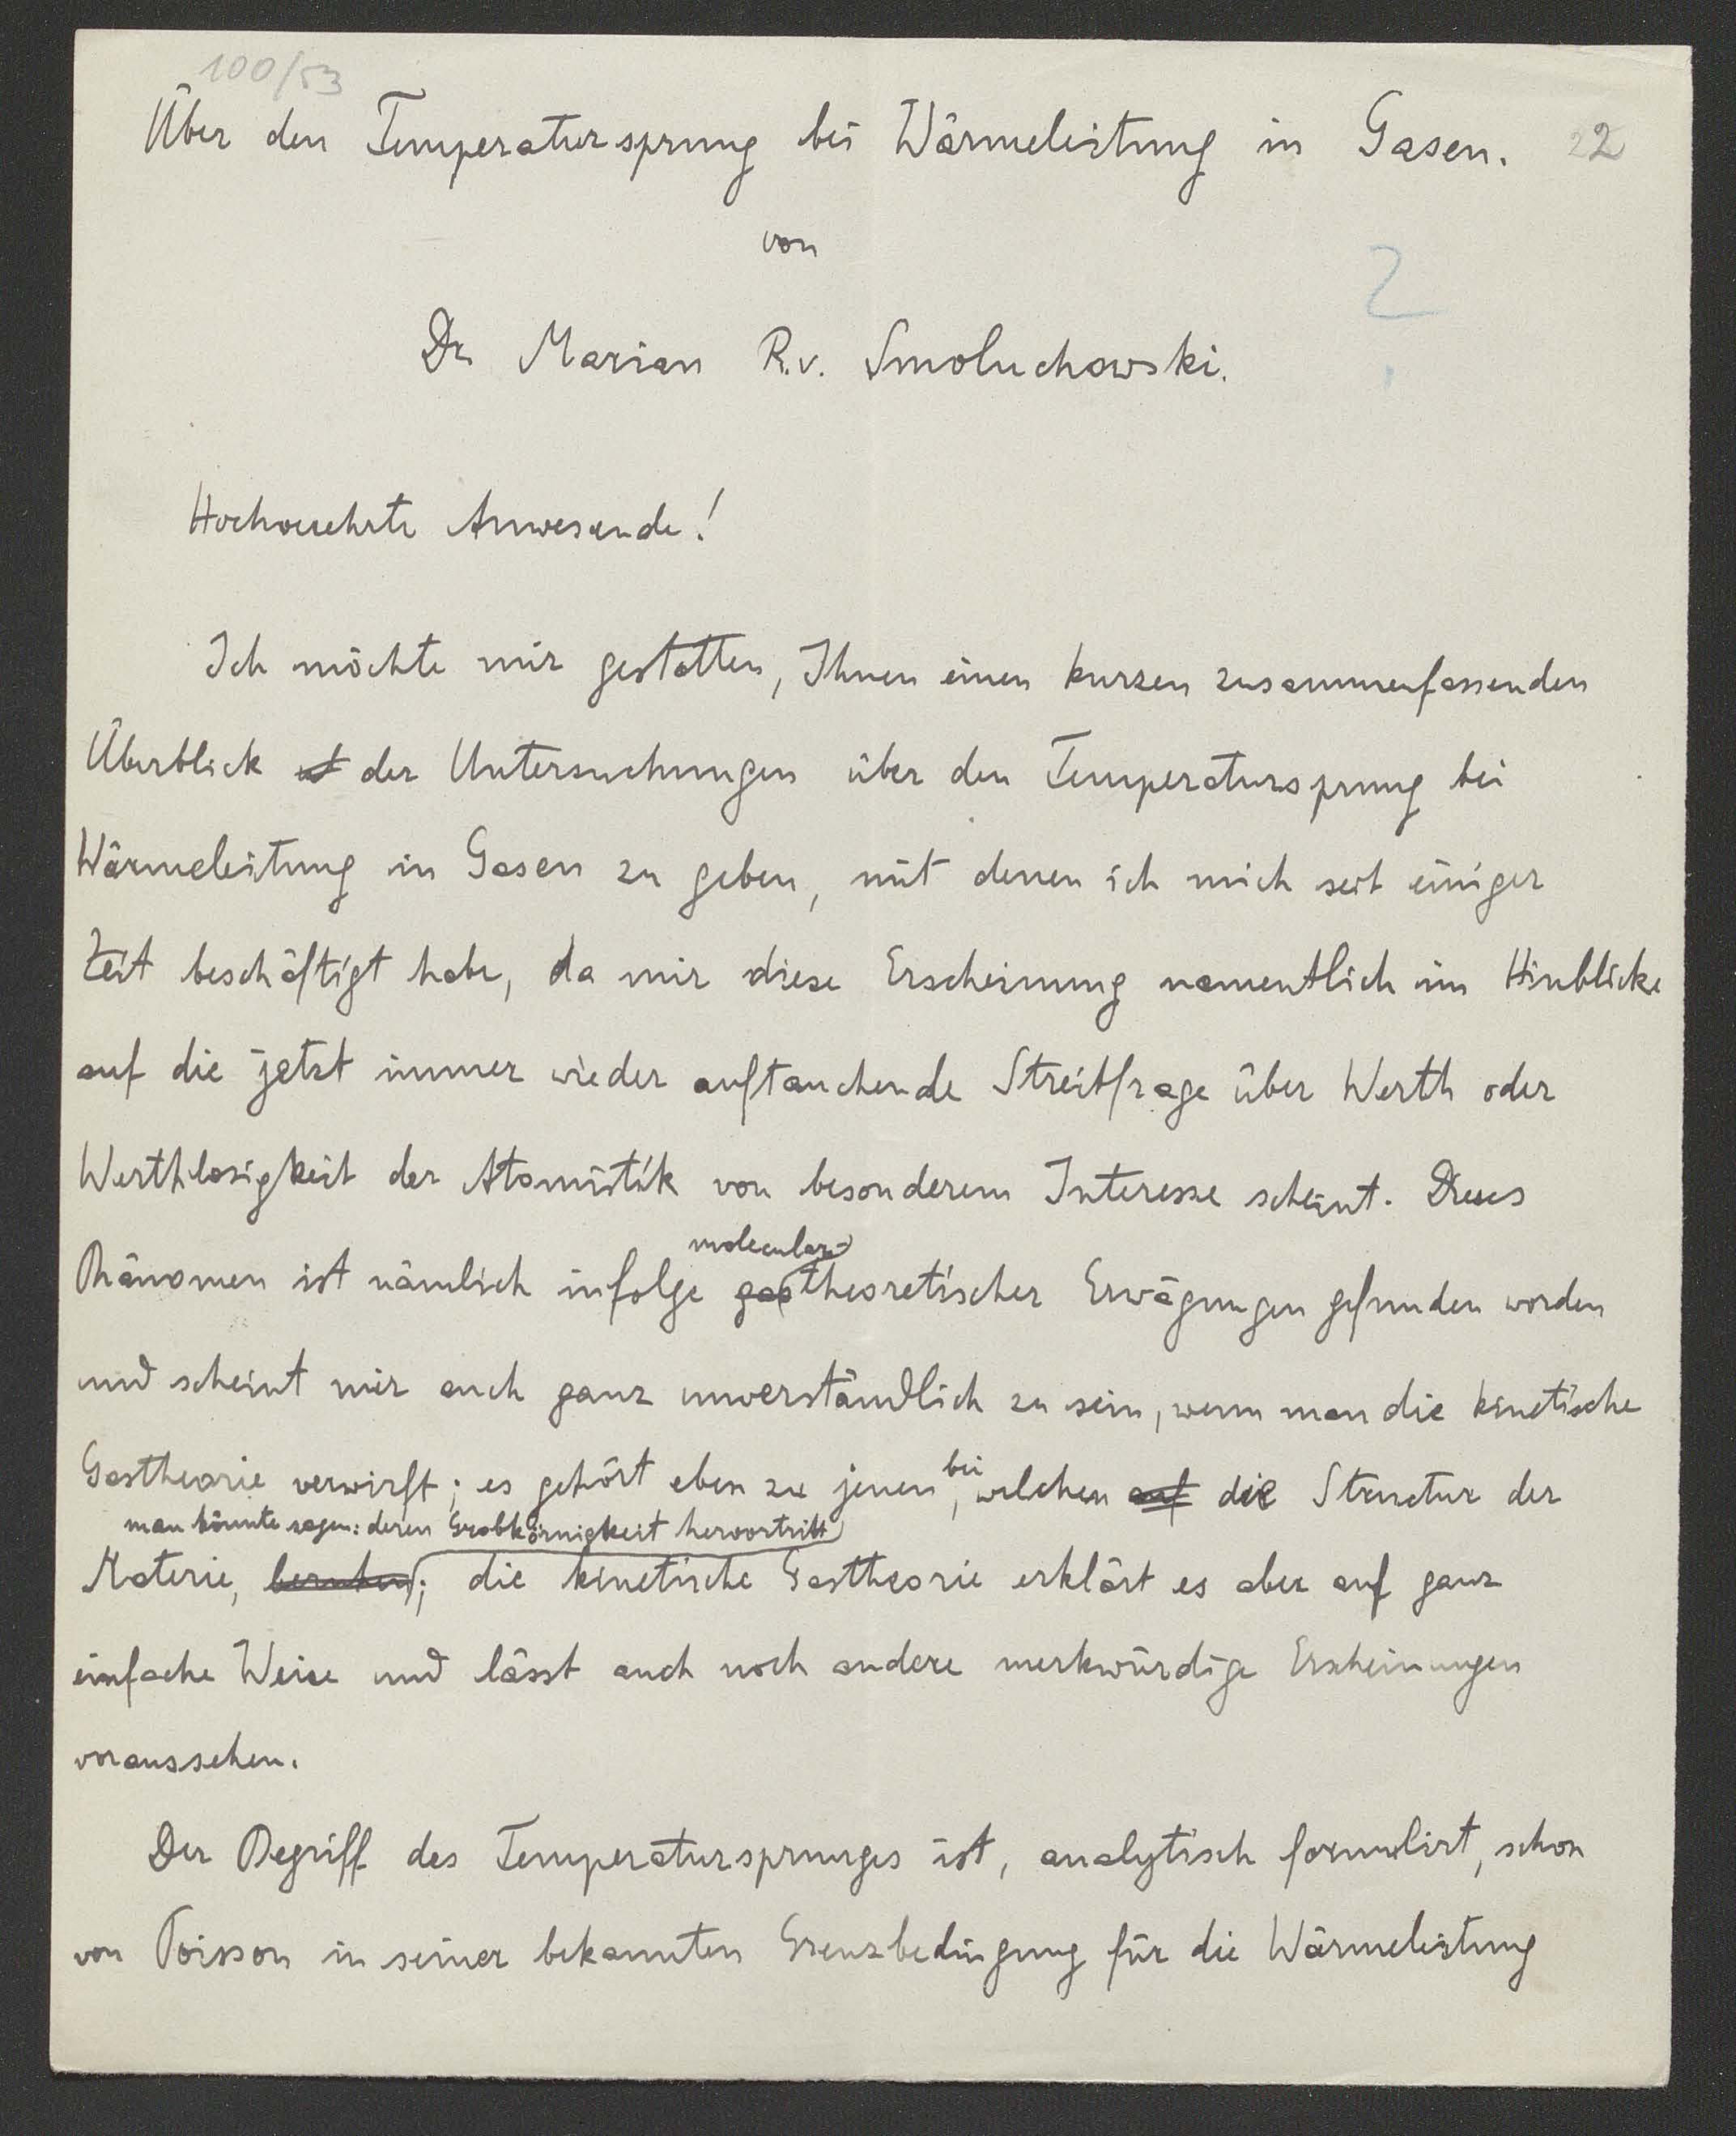 100/53
Über den Temperatursprung bei Wärmeleitung in Gasen. 22
von
2
Dr Marian R.v. Smoluchowski.
Hochverehrte Anwesende!
Ich möchte mir gestatten, Ihnen einen kurzen zusammenfassenden
Überblick der Untersuchungen über den Temperatursprung bei
Wärmeleitung in Gasen zu geben, mit denen ich mich seit einiger
Zeit beschäftigt habe, da mir diese Erscheinung namentlich im Hinblicke
auf die jetzt immer wieder auftauchende Streitfrage über Werth oder
Werthlosigkeit der Atomistik von besonderem Interesse scheint. Dieses
molecular-
Phänomen ist nämlich infolge gastheoretischer Erwägungen gefunden worden
und scheint mir auch ganz unverständlich zu sein, wenn man die kinetische
bei
Gastheorie verwirft; es gehört eben zu jenen, welchen auf die Structur der
man könnte sagen: deren Grobkörnigkeit hervortritt
Materie, beruhen; die kinetische Gastheorie erklärt es aber auf ganz
einfache Weise und lässt auch noch andere merkwürdige Erscheinungen
voraussehen.
Der Begriff des Temperatursprunges ist, analytisch formulirt, schon
von Poisson in seiner bekannten Grenzbedingung für die Wärmeleitung